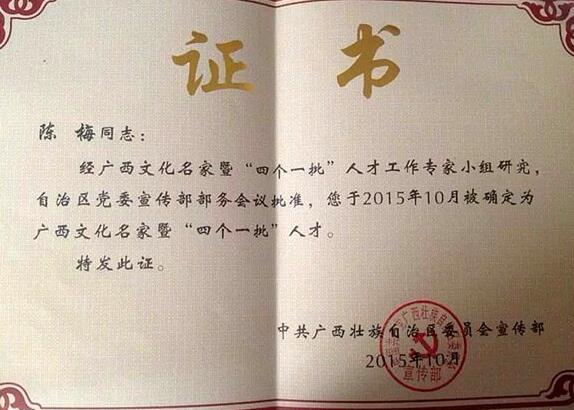 证书
陈 梅同志：
经广西文化名家暨“四个一批”人才工作专家小组研究，
自治区党委宣传部部务会议批准，您于2015年10月被确定为
广西文化名家暨“四个一批”人才。
特发此证。
中共广西壮族自治区委员会宣传部
2015年10月
宣传部